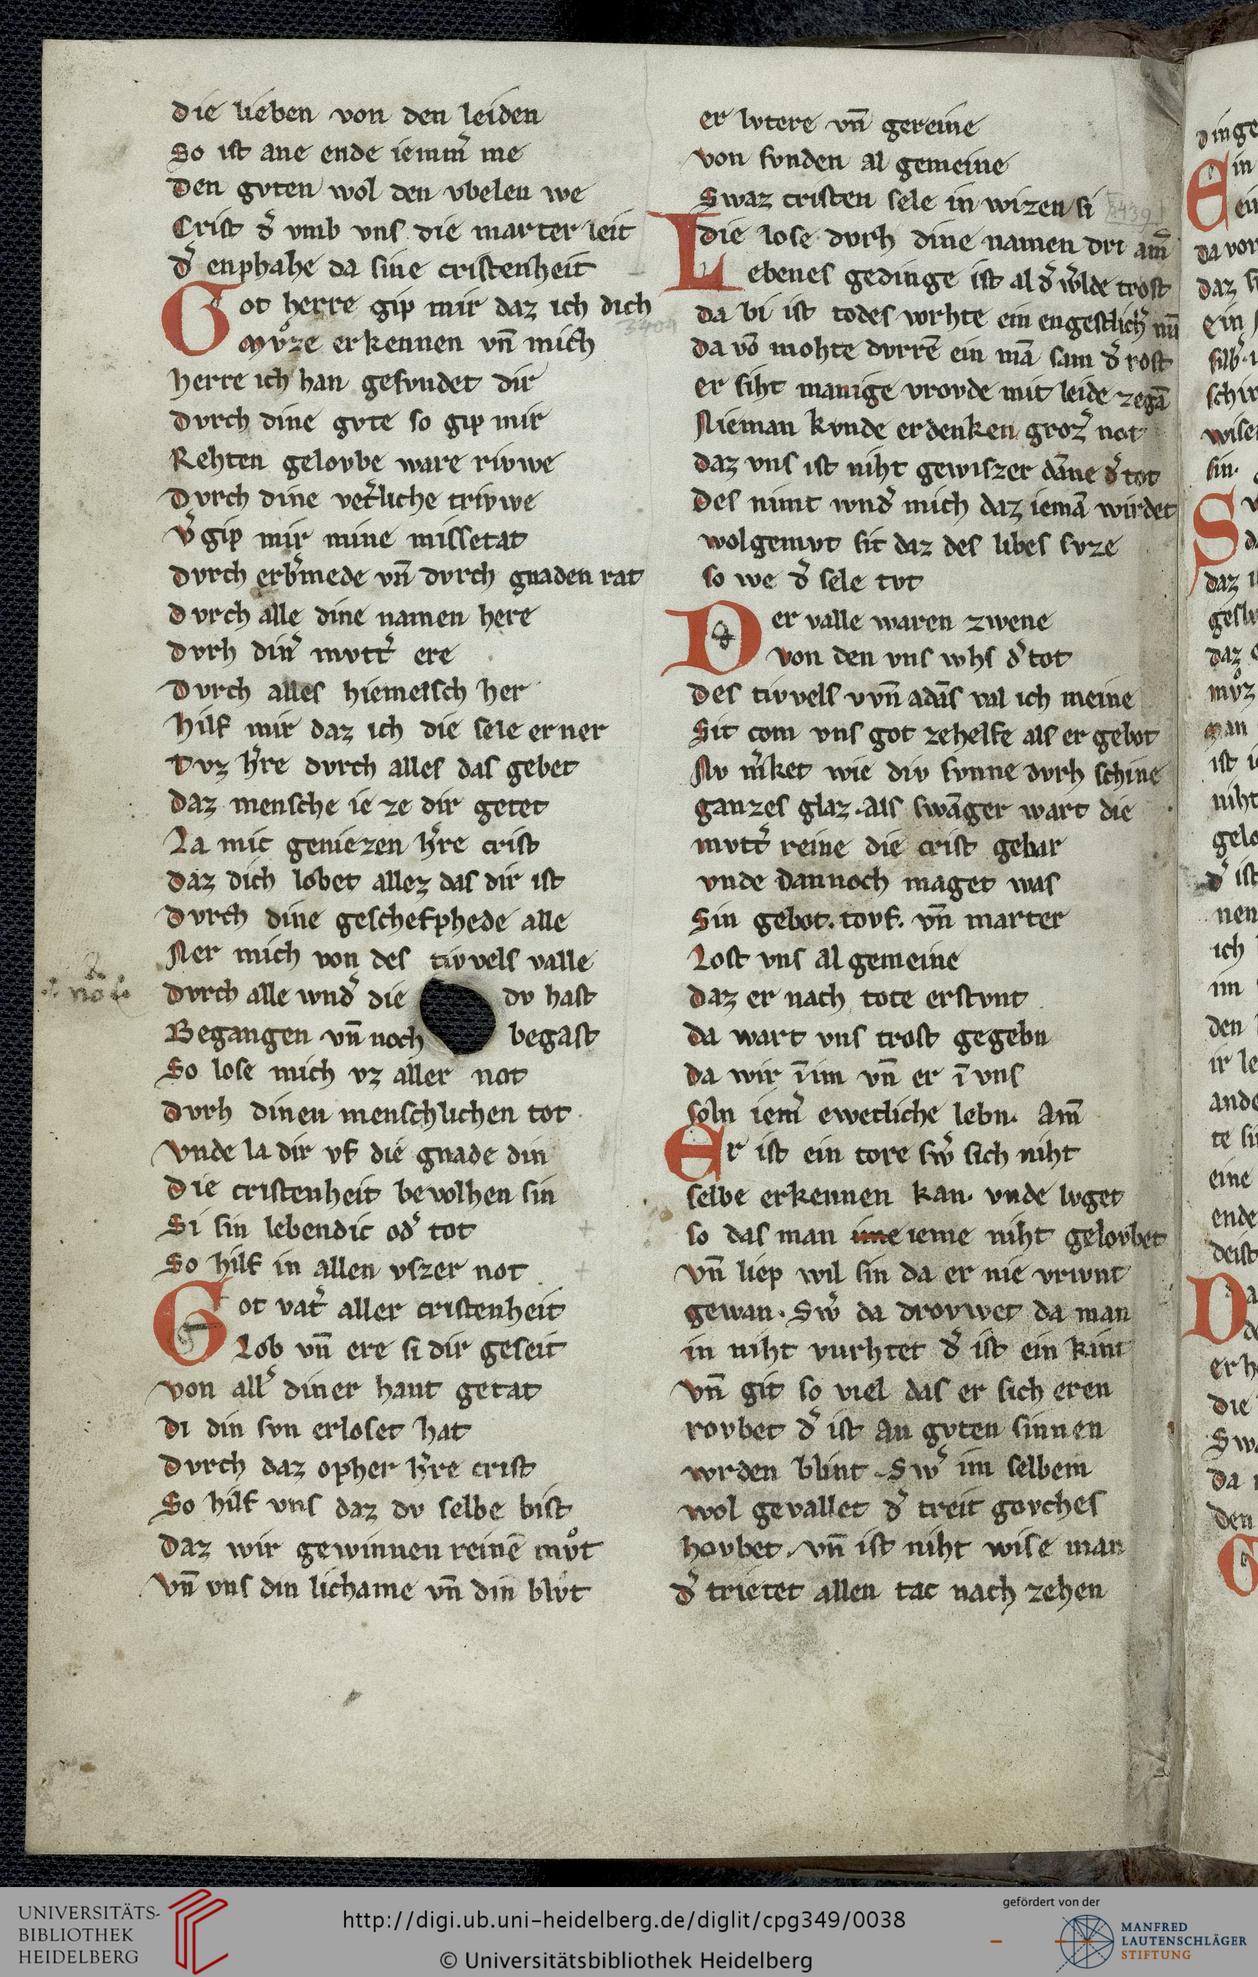 die lieben von den leiden
So ist ane ende iemm̄ me
Den gvten wol den vbelen we
Crist d̾ vmb vns die marter leit
d̾ enphahe da sine cristenheit
Got herre gip mir daz ich dich
mvͦze erkennen vn̄ mich
herre ich han gesvndet dir
Dvrch dine gvte so gip mir
Rehten gelovbe ware rivwe
Dvrch dine vet̾liche trivwe
v̾gip mir mine missetat
Dvrch erb̾mede vn̄ dvrch gnaden rat
Dvrch alle dine namen here
Dvrh din̾ mvtt̾ ere
Dvrch alles hiemelsch her
hilf mir daz ich die sele erner
Tvz h̾re dvrch alles das gebet
Daz mensche ie ze dir getet
La mic geniezen h̾re crist
Daz dich lobet allez das dir ist
Dvrch dine geschefphede alle
Ner mich von des tivvels valle
Dvrch alle wnd̾ die dv hast
Begangen vn̄ noch begast
So lose mich vz aller not
Dvrh dinen menschlichen tot
Vnde la dir vf die gnade din
Die cristenheit bevolhen sin
Si sin lebendic od̾ tot
So hilf in allen vszer not
Got vat̾ aller cristenheit
Lob vn̄ ere si dir geseit
von all̾ diner hant getat
Di din svn erloset hat
Dvrch daz opher h̾re crist
So hilf vns daz dv selbe bist
Daz wir gewinnen reinē mvͦt
Vn̄ vns din lichame vn̄ din blvͦt
er lvtere vn̄ gereine
von svnden al gemeine
Swaz cristen sele in wizen si
die lose dvrh dine namen dri am̄
Lebenes gedinge ist al d̾ w̾lde trost
da bi ist todes vorhte ein engestlich̾ nū
da vō mohte dvrrē ein mā sam d̾ rost
er siht manige vrovde mit leide zegā
Nieman kvnde erdenken groz̾ not
daz vns ist niht gewiszer dāne d̾ tot
des nimt wnd̾ mich daz iemā wirdet
wolgemvt sit daz des libes svze
so we d̾ sele tvt
Der valle waren zwene
von den vns whs d̾ tot
des tivvels vvn̄ adās val ich meine
Sit com vns got zehelfe als er gebot
Nv m̾ket wie div svnne dvrh schine
ganzes glaz. Als swāger wart die
mvtt̾ reine die crist gebar
vnde dannoch maget was
Sin gebot. tovf. vn̄ marter
Lost vns al gemeine
daz er nach tote erstvnt
da wart vns trost gegebn
da wir ī im vn̄ er ī vns
soln iem̾ ewecliche lebn. Am̄
Er ist ein tore sw̾ sich niht
selbe erkennen kan. vnde lvget
so das man ime ieme niht gelovbet
vn̄ liep wil sin da er nie vrivnt
gewan. Sw̾ da drovwet da man
in niht vurhtet d̾ ist ein kint
vn̄ git so viel das er sich eren
rovbet d̾ ist an gvten sinnen
worden blint. Sw̾ im selbem
wol gevallet d̾ treit govches
hovbet. vn̄ ist niht wise man
d̾ trietet allen tac nach zehen
UNIVERSITÄTS-
BIBLIOTHEK
HEIDELBERG
http://digi.ub.uni-heidelberg.de/diglit/cpg349/0038
© Universitätsbibliothek Heidelberg
gefördert von der
MANFRED
LAUTENSCHLÄGER
STIFTUNG